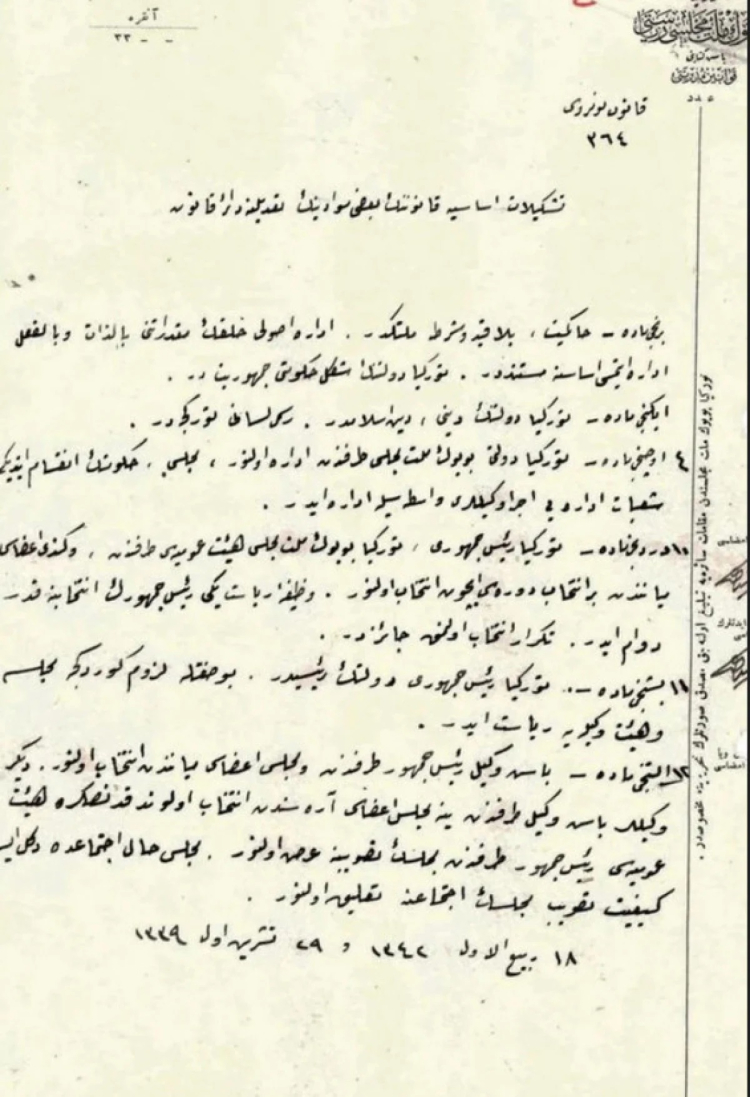 آنقره
٣٣
بیوك ملت مجلسی ریاستی
باش كتابتی
قوانین مدیریتی
عدد
قانون نومروسی
٣٦٤
تشكیلات اساسیه قانوننك بعض موادینك تعدیلنه دائر قانون
برنجی ماده – حاكمیت ، بلا قید وشرط ملتكدر . اداره اصولی خلقك مقدراتنی بالذات وبالفعل
اداره ایتمسی اساسنه مستنددر . توركیا دولتنك شكل حكومتی جمهوریت در .
ایكنجی ماده – توركیا دولتنك دینی ، دین اسلامدر . رسمی لسانی توركجه در .
٤ اوچنجی ماده – توركیا دولتی بویوك ملت مجلسی طرفندن اداره اولنور ، مجلس ، حكومتك انقسام ایتدیكی
شعبات اداره یی اجرا وكیللری واسطه سیله اداره ایدر .
١٠ دردنجی ماده – توركیا رئیس جمهوری ، توركیا بویوك ملت مجلسی هیئت عمومیه سی طرفندن ، وكندی اعضاسی
میانندن بر انتخاب دوره سی ایچون انتخاب اولنور . وظیفهٔ ریاست یكی رئیس جمهورك انتخابنه قدر
دوام ایدر . تكرار انتخاب اولنمق جائزدر .
١١ بشنجی ماده – توركیا رئیس جمهوری دولتك رئیسیدر . بو صفتله لزوم كوردكجه مجلسه
وهیئت وكیله یه ریاست ایدر .
١٢ آلتنجی ماده – باش وكیل رئیس جمهور طرفندن ومجلس اعضاسی میانندن انتخاب اولنور . دیكر
وكیللر باش وكیل طرفندن ینه مجلس اعضاسی آره سندن انتخاب اولوندقدنصكره هیئت
عمومیه سی رئیس جمهور طرفندن مجلسك تصویبنه عرض اولنور . مجلس حال اجتماعده دكل ایسه
كیفیت تصویب مجلسك اجتماعنه تعلیق اولنور .
١٨ ربیع الاول ١٣٤٢ و ٢٩ تشرین اول ١٣٣٩
توركیا بویوك ملت مجلسندن مقامات سائره یه تبلیغ اولنه جق مصدق صورتلرك تحریرینه مخصوصدر .